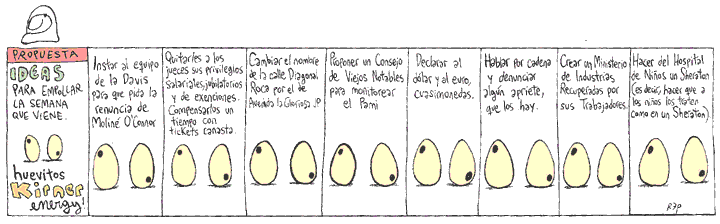 PROPUESTA
IDEAS
PARA EMPOLLAR
LA SEMANA
QUE VIENE.
huevitos
Kirner
energy!
Instar al equipo
de la Davis
para que pida la
renuncia de
Moliné O'Connor
Quitarles a los
jueces sus privilegios
salariales, jubilatorios y
de exenciones.
Compensarlos un
tiempo con
tickets canasta.
Cambiar el nombre
de la calle Diagonal
Roca por el de
Avenida la Gloriosa JP
Proponer un Consejo
de Viejos Notables
para monitorear
el Pami
Declarar al
dólar y al euro,
cuasimonedas.
Hablar por cadena
y denunciar
algún apriete,
que los hay.
Crear un Ministerio
de Industrias
Recuperadas por
sus Trabajadores.
Hacer del Hospital
de Niños un Sheraton
(es decir, hacer que a
los niños los traten
como en un Sheraton)
REP